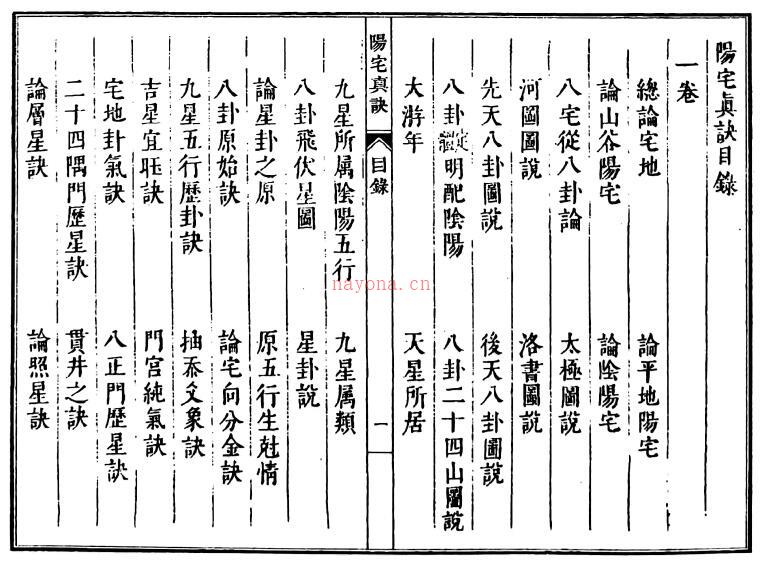 陽宅真訣目錄
一卷
總論宅地 論平地陽宅
論山谷陽宅 論陰陽宅
八宅從八卦論 太極圖說
河圖圖說 洛書圖說
先天八卦圖說 後天八卦圖說
八卦定明配陰陽 八卦二十四山圖說
大游年 天星所居
陽宅真訣 目錄 一
九星所属陰陽五行 九星属類
八卦飛伏星圖 星卦說
論星卦之原 原五行生尅情
八卦原始訣 論宅向分金訣
九星五行歷卦訣 抽爻象訣
吉星宜旺訣 門宫純氣訣
宅地卦氣訣 八正門歷星訣
二十四隅門歷星訣 貫井之訣
論層星訣 論照星訣
nayona.cn